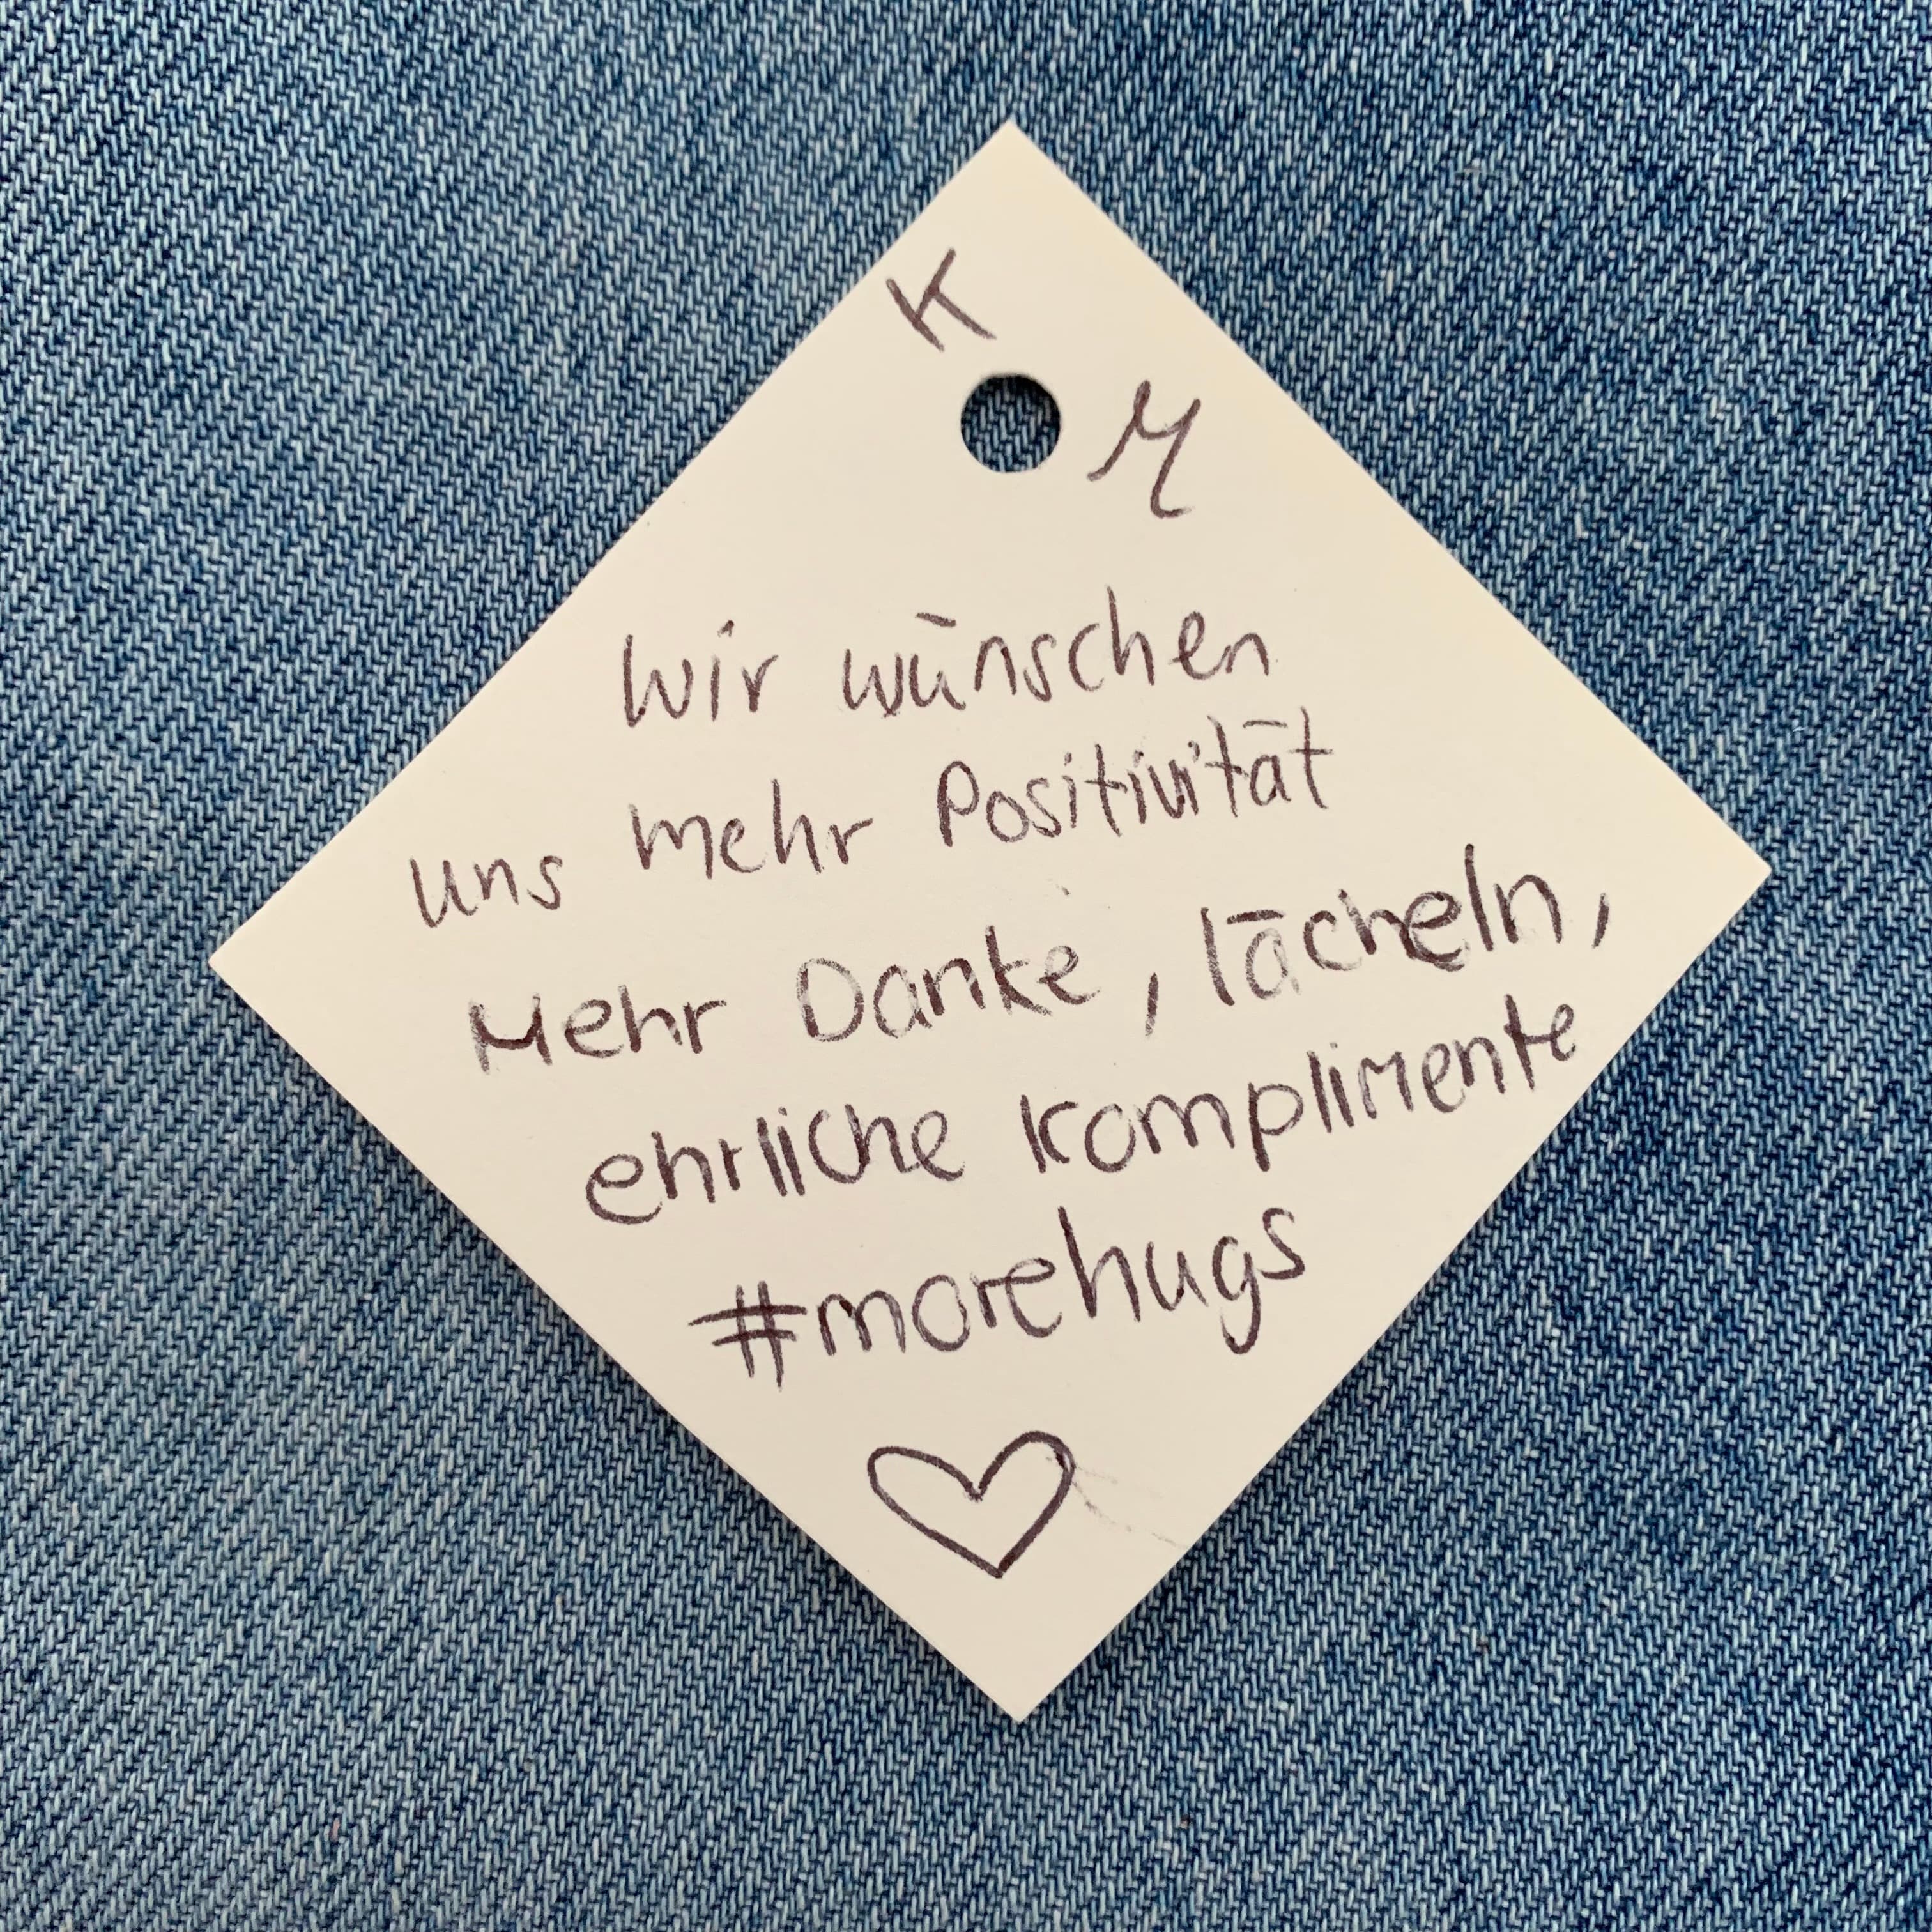 K
M
Wir wünschen
uns mehr Positivität
Mehr Danke, lächeln,
ehrliche Komplimente
#morehugs